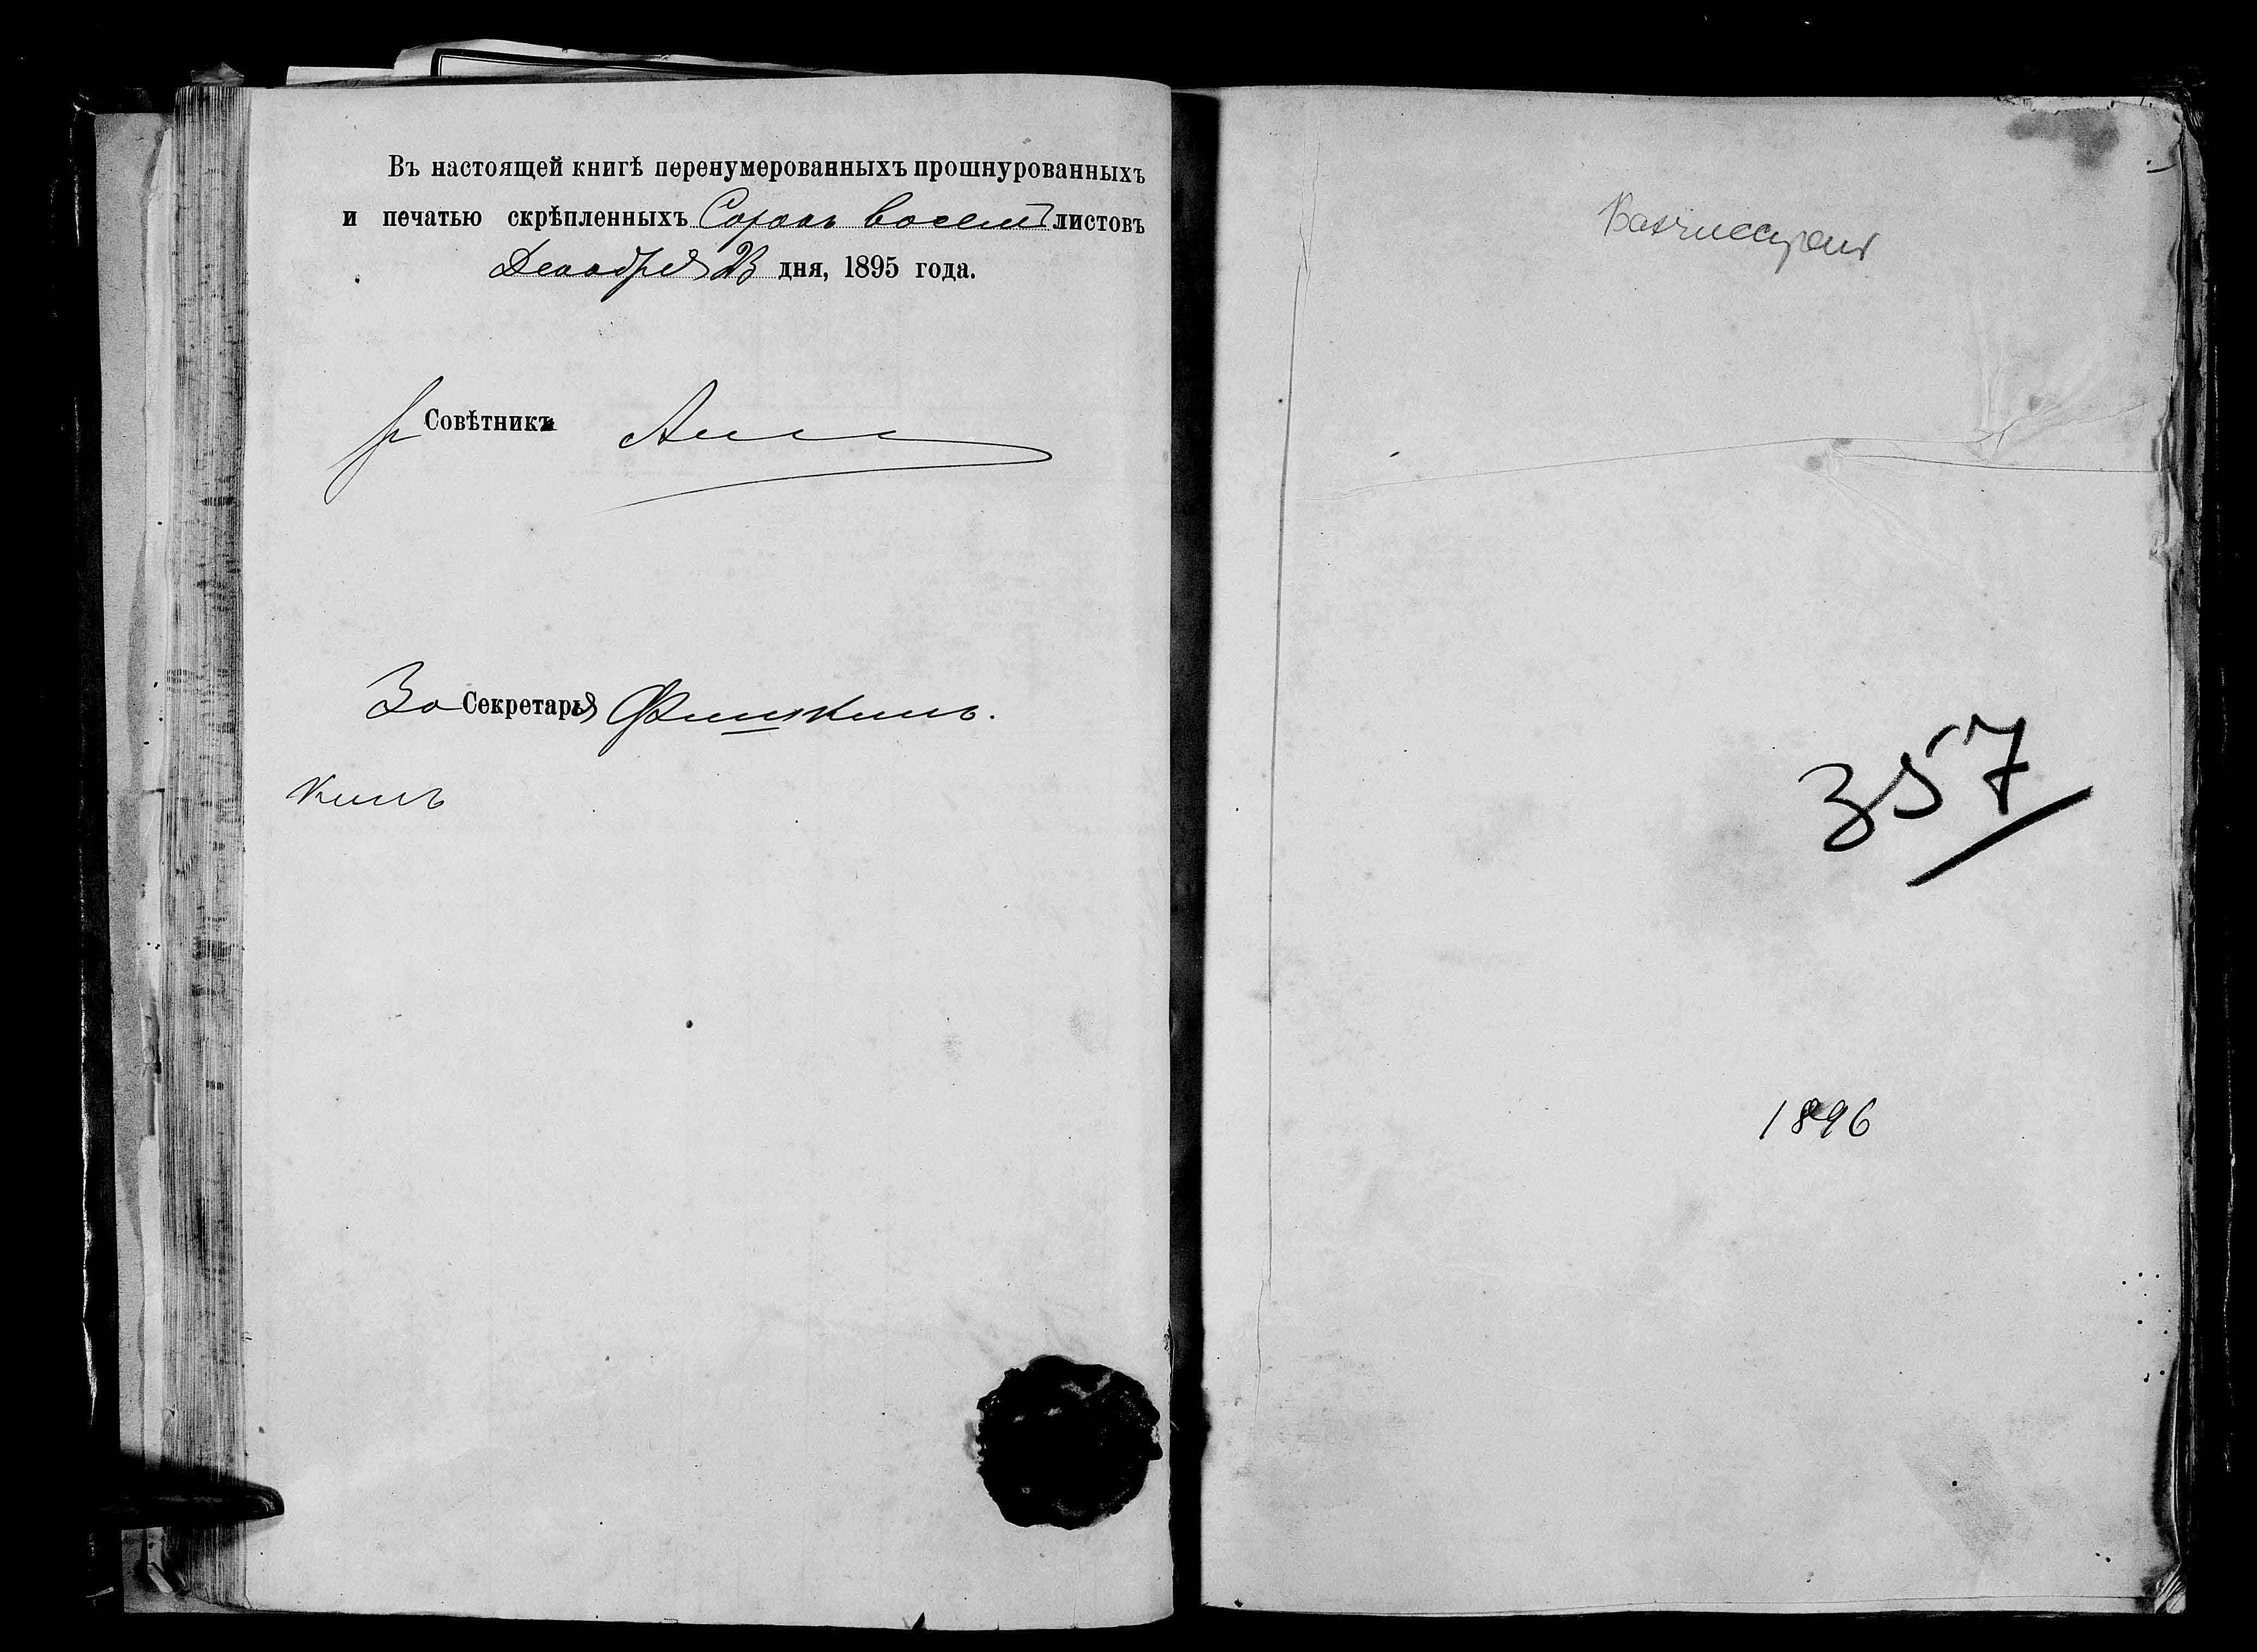 Въ настоящей книгѣ перенумерованныхъ прошнурованныхъ
и печатью скрѣпленныхъ Сорокъ восемь листовъ
Декабря 23 дня, 1895 года.
Совѣтникъ
За Секретаря
кинъ
357
1896